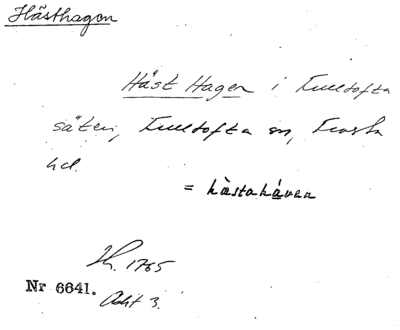 Hästhagen
Häst Hagen i Fulltofta
säteri, Fulltofta sn, Frosta
hd.
= hästahåven
Nr 6641.
1765
Akt 3.